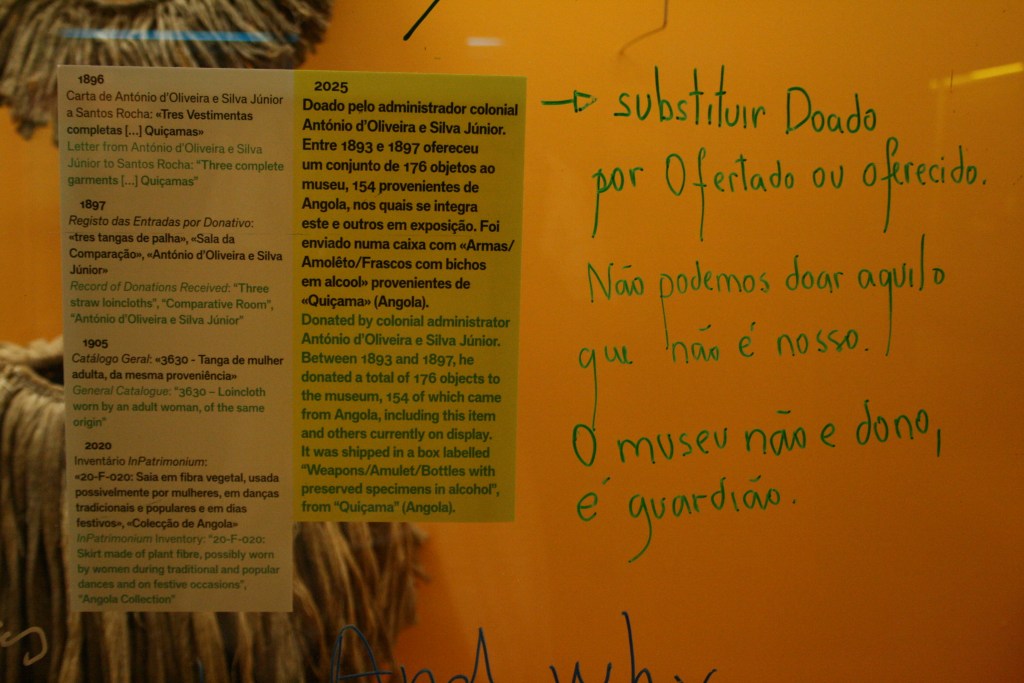 1896
Carta de António d'Oliveira e Silva Júnior
a Santos Rocha: «Tres Vestimentas
completas [...] Quiçamas»
Letter from António d'Oliveira e Silva
Júnior to Santos Rocha: "Three complete
garments [...] Quiçamas"
1897
Registo das Entradas por Donativo:
«tres tangas de palha», «Sala da
Comparação», «António d'Oliveira e Silva
Júnior»
Record of Donations Received: "Three
straw loincloths", "Comparative Room",
"António d'Oliveira e Silva Júnior"
1905
Catálogo Geral: «3630 - Tanga de mulher
adulta, da mesma proveniência»
General Catalogue: "3630 – Loincloth
worn by an adult woman, of the same
origin"
2020
Inventário InPatrimonium:
«20-F-020: Saia em fibra vegetal, usada
possivelmente por mulheres, em danças
tradicionais e populares e em dias
festivos», «Colecção de Angola»
InPatrimonium Inventory: "20-F-020:
Skirt made of plant fibre, possibly worn
by women during traditional and popular
dances and on festive occasions",
"Angola Collection"
2025
Doado pelo administrador colonial
António d'Oliveira e Silva Júnior.
Entre 1893 e 1897 ofereceu
um conjunto de 176 objetos ao
museu, 154 provenientes de
Angola, nos quais se integra
este e outros em exposição. Foi
enviado numa caixa com «Armas/
Amolêto/Frascos com bichos
em alcool» provenientes de
«Quiçama» (Angola).
Donated by colonial administrator
António d'Oliveira e Silva Júnior.
Between 1893 and 1897, he
donated a total of 176 objects to
the museum, 154 of which came
from Angola, including this item
and others currently on display.
It was shipped in a box labelled
"Weapons/Amulet/Bottles with
preserved specimens in alcohol",
from "Quiçama" (Angola).
→ substituir Doado
por Ofertado ou oferecido.
Não podemos doar aquilo
que não é nosso.
O museu não e dono,
é guardião.
And why